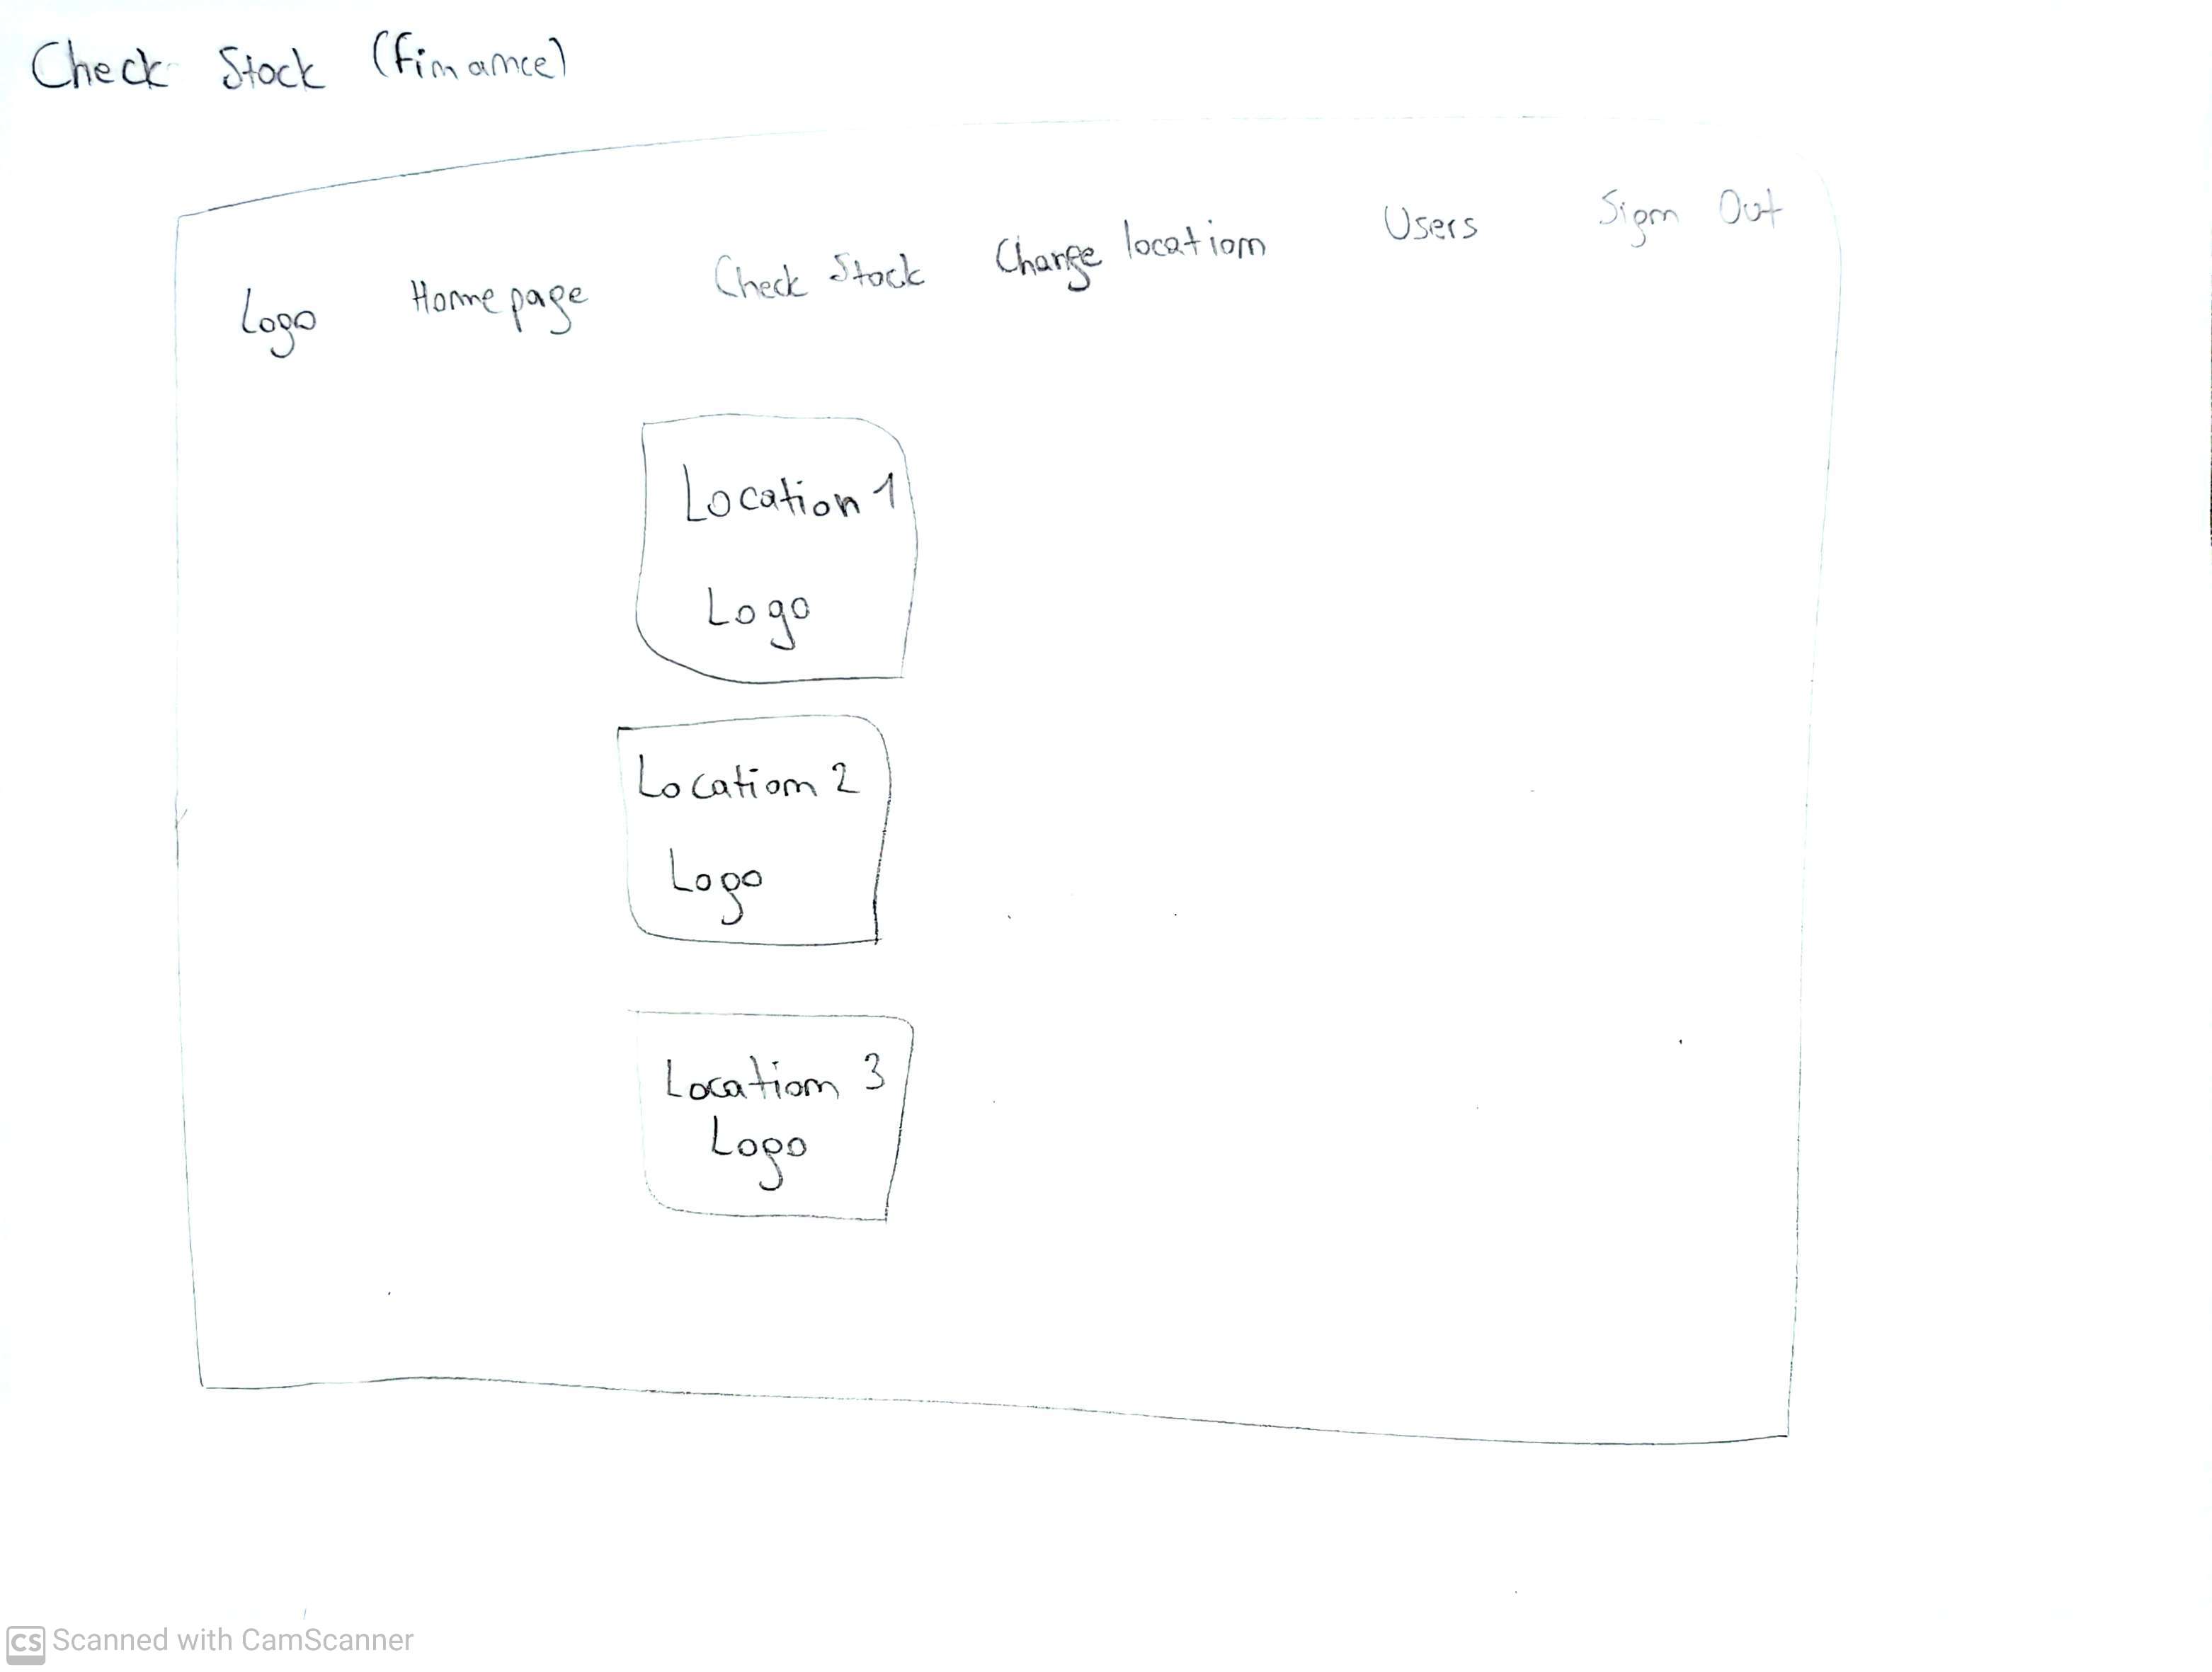 Check Stock (finance)
Logo Homepage Check Stock Change location Users Sign Out
Location 1
Logo
Location 2
Logo
Location 3
Logo
CS Scanned with CamScanner